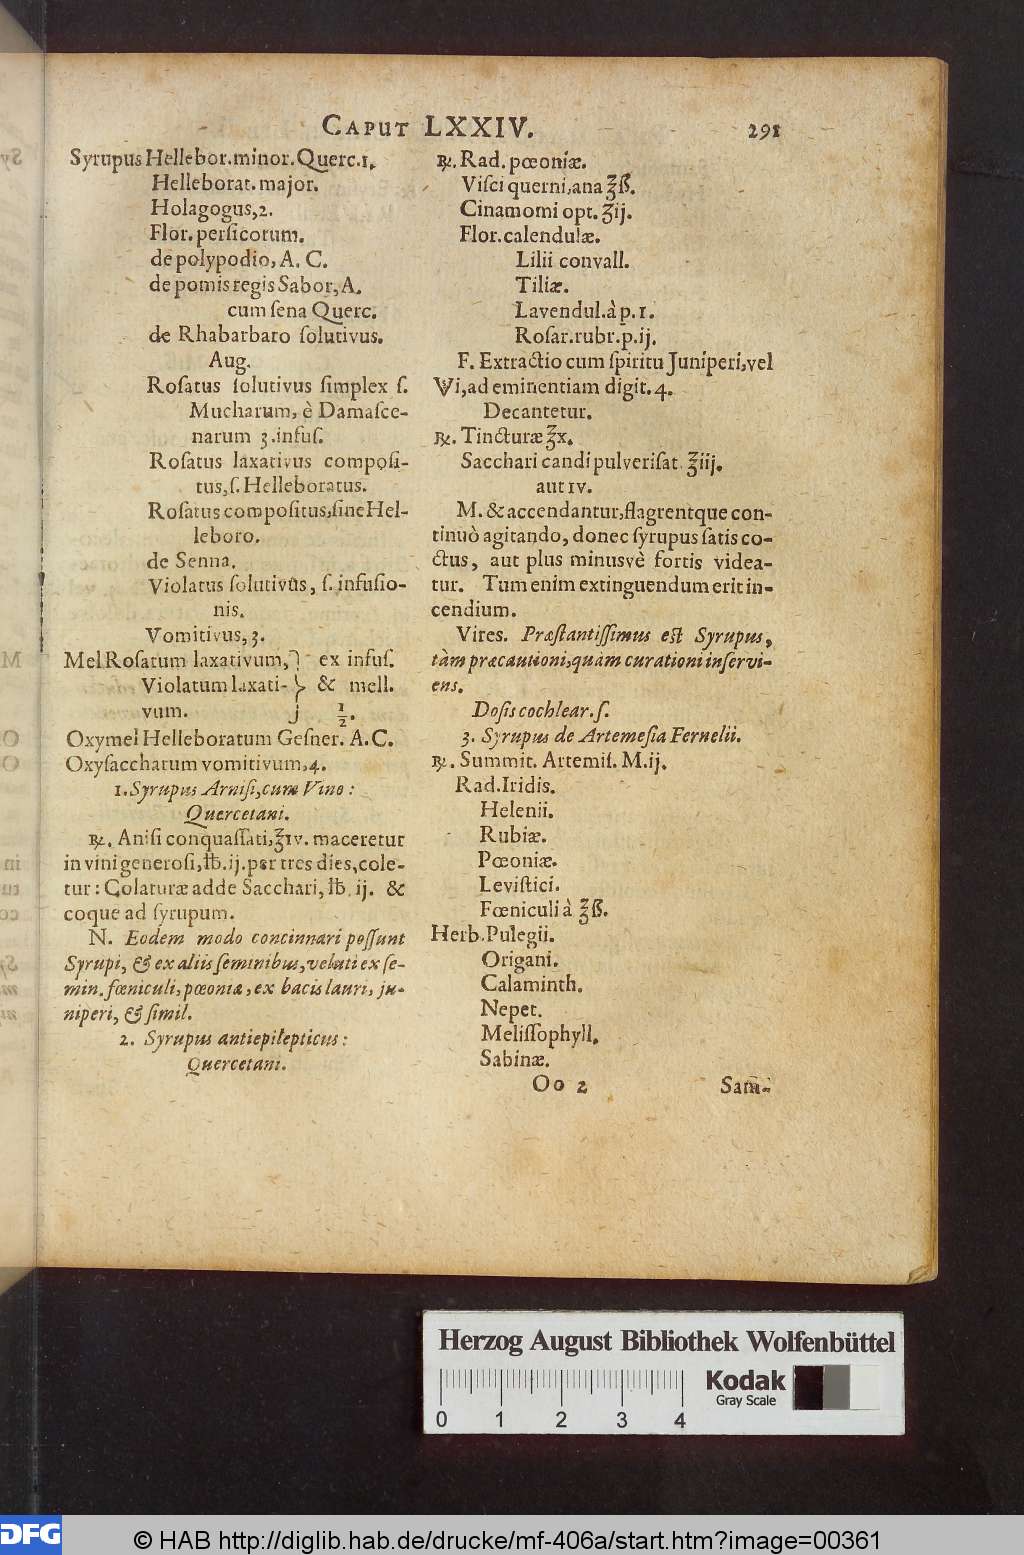 CAPUT LXXIV. 291
Syrupus Hellebor. minor. Querc. 1.
Helleborat. major.
Holagogus, 2.
Flor. persicorum.
de polypodio, A. C.
de pomis regis Sabor, A.
cum sena Querc.
de Rhabarbaro ſolutivus.
Aug.
Roſatus ſolutivus ſimplex ſ.
Mucharum, è Damaſce-
narum 3. infuſ.
Roſatus laxativus compoſi-
tus, ſ. Helleboratus.
Roſatus compoſitus, ſine Hel-
leboro.
de Senna.
Violatus ſolutivûs, ſ. infuſio-
nis.
Vomitivus, 3.
Mel Roſatum laxativum, } ex infuſ.
Violatum laxati- } & mell.
vum. } 1/2.
Oxymel Helleboratum Geſner. A. C.
Oxyſaccharum vomitivum, 4.
1. Syrupus Aniſi, cum Vino:
Quercetani.
℞. Aniſi conquaſſati, ℥ IV. maceretur
in vini generoſi, ℔. ij. per tres dies, cole-
tur: Colaturæ adde Sacchari, ℔. ij. &
coque ad ſyrupum.
N. Eodem modo concinnari poſſunt
Syrupi, & ex aliis ſeminibus, veluti ex ſe-
min. fœniculi, pœonia, ex bacis lauri, ju-
niperi, & ſimil.
2. Syrupus antiepilepticus:
Quercetani.
℞. Rad. pœoniæ.
Viſci querni, ana ℥ß.
Cinamomi opt. ℥ij.
Flor. calendulæ.
Lilii convall.
Tiliæ.
Lavendul. à p. 1.
Roſar. rubr. p. ij.
F. Extractio cum ſpiritu Juniperi, vel
Vi, ad eminentiam digit. 4.
Decantetur.
℞. Tincturæ ℥x.
Sacchari candi pulveriſat. ℥iij.
aut IV.
M. & accendantur, flagrentque con-
tinuò agitando, donec ſyrupus ſatis co-
ctus, aut plus minusvè fortis videa-
tur. Tum enim extinguendum erit in-
cendium.
Vires. Præſtantiſſimus eſt Syrupus,
tàm præcautioni, quàm curationi inſervi-
ens.
Doſis cochlear. ſ.
3. Syrupus de Artemeſia Fernelii.
℞. Summit. Artemiſ. M. ij.
Rad. Iridis.
Helenii.
Rubiæ.
Pœoniæ.
Leviſtici.
Fœniculi à ℥ß.
Herb. Pulegii.
Origani.
Calaminth.
Nepet.
Meliſſophyll.
Sabinæ.
Oo 2 Sam-
Herzog August Bibliothek Wolfenbüttel
Kodak
Gray Scale
0 1 2 3 4
DFG © HAB http://diglib.hab.de/drucke/mf-406a/start.htm?image=00361